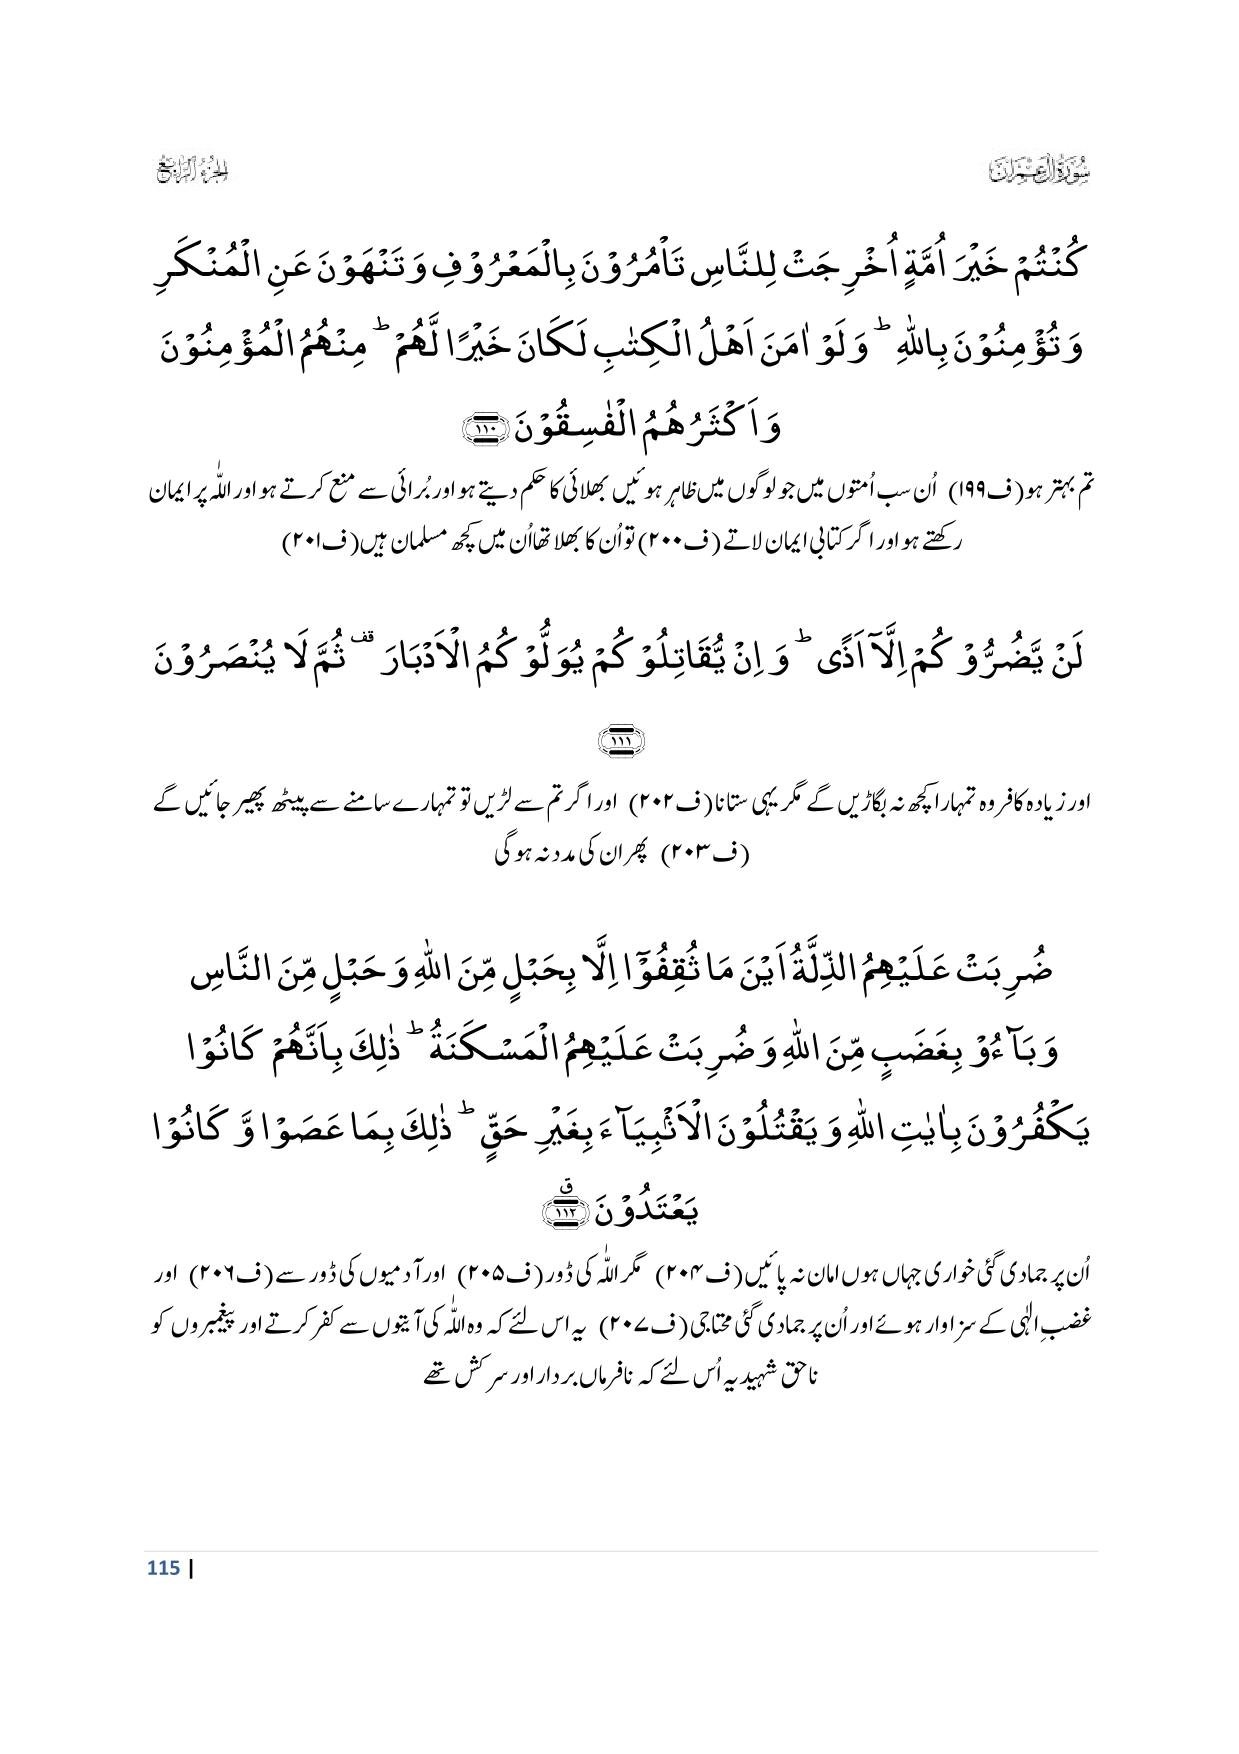 سُوْرَةُ اٰلِ عِمْرٰنَ
الجُزْءُ الرَّابِعُ
كُنْتُمْ خَيْرَ اُمَّةٍ اُخْرِجَتْ لِلنَّاسِ تَاْمُرُوْنَ بِالْمَعْرُوْفِ وَ تَنْهَوْنَ عَنِ الْمُنْكَرِ
وَ تُؤْمِنُوْنَ بِاللّٰهِ ؕ وَ لَوْ اٰمَنَ اَهْلُ الْكِتٰبِ لَكَانَ خَيْرًا لَّهُمْ ؕ مِنْهُمُ الْمُؤْمِنُوْنَ
وَ اَكْثَرُهُمُ الْفٰسِقُوْنَ ﴿۱۱۰﴾
تم بہتر ہو(ف۱۹۹) اُن سب اُمتوں میں جو لوگوں میں ظاہر ہوئیں بھلائی کا حکم دیتے ہو اور بُرائی سے منع کرتے ہو اور اللّٰہ پر ایمان
رکھتے ہو اور اگر کتابی ایمان لاتے (ف۲۰۰)تو اُن کا بھلا تھا اُن میں کچھ مسلمان ہیں(ف۲۰۱)
لَنْ يَّضُرُّوْكُمْ اِلَّاۤ اَذًى ؕ وَ اِنْ يُّقَاتِلُوْكُمْ يُوَلُّوْكُمُ الْاَدْبَارَ ۟ ثُمَّ لَا يُنْصَرُوْنَ
﴿۱۱۱﴾
اور زیادہ کافر وہ تمہارا کچھ نہ بگاڑیں گے مگر یہی ستانا(ف۲۰۲) اور اگر تم سے لڑیں تو تمہارے سامنے سے پیٹھ پھیر جائیں گے
(ف۲۰۳) پھر ان کی مدد نہ ہو گی
ضُرِبَتْ عَلَيْهِمُ الذِّلَّةُ اَيْنَ مَا ثُقِفُوْۤا اِلَّا بِحَبْلٍ مِّنَ اللّٰهِ وَ حَبْلٍ مِّنَ النَّاسِ
وَ بَآءُوْ بِغَضَبٍ مِّنَ اللّٰهِ وَ ضُرِبَتْ عَلَيْهِمُ الْمَسْكَنَةُ ؕ ذٰلِكَ بِاَنَّهُمْ كَانُوْا
يَكْفُرُوْنَ بِاٰيٰتِ اللّٰهِ وَ يَقْتُلُوْنَ الْاَنْۢبِيَآءَ بِغَيْرِ حَقٍّ ؕ ذٰلِكَ بِمَا عَصَوْا وَّ كَانُوْا
يَعْتَدُوْنَ ﴿۱۱۲﴾ ۗق
اُن پر جما دی گئی خواری جہاں ہوں امان نہ پائیں(ف۲۰۴) مگر اللّٰہ کی ڈور(ف۲۰۵) اور آدمیوں کی ڈور سے(ف۲۰۶) اور
غضبِ الٰہی کے سزاوار ہوئے اور اُن پر جما دی گئی محتاجی(ف۲۰۷) یہ اس لئے کہ وہ اللّٰہ کی آیتوں سے کفر کرتے اور پیغمبروں کو
ناحق شہید یہ اُس لئے کہ نافرماں بردار اور سرکش تھے
115 |